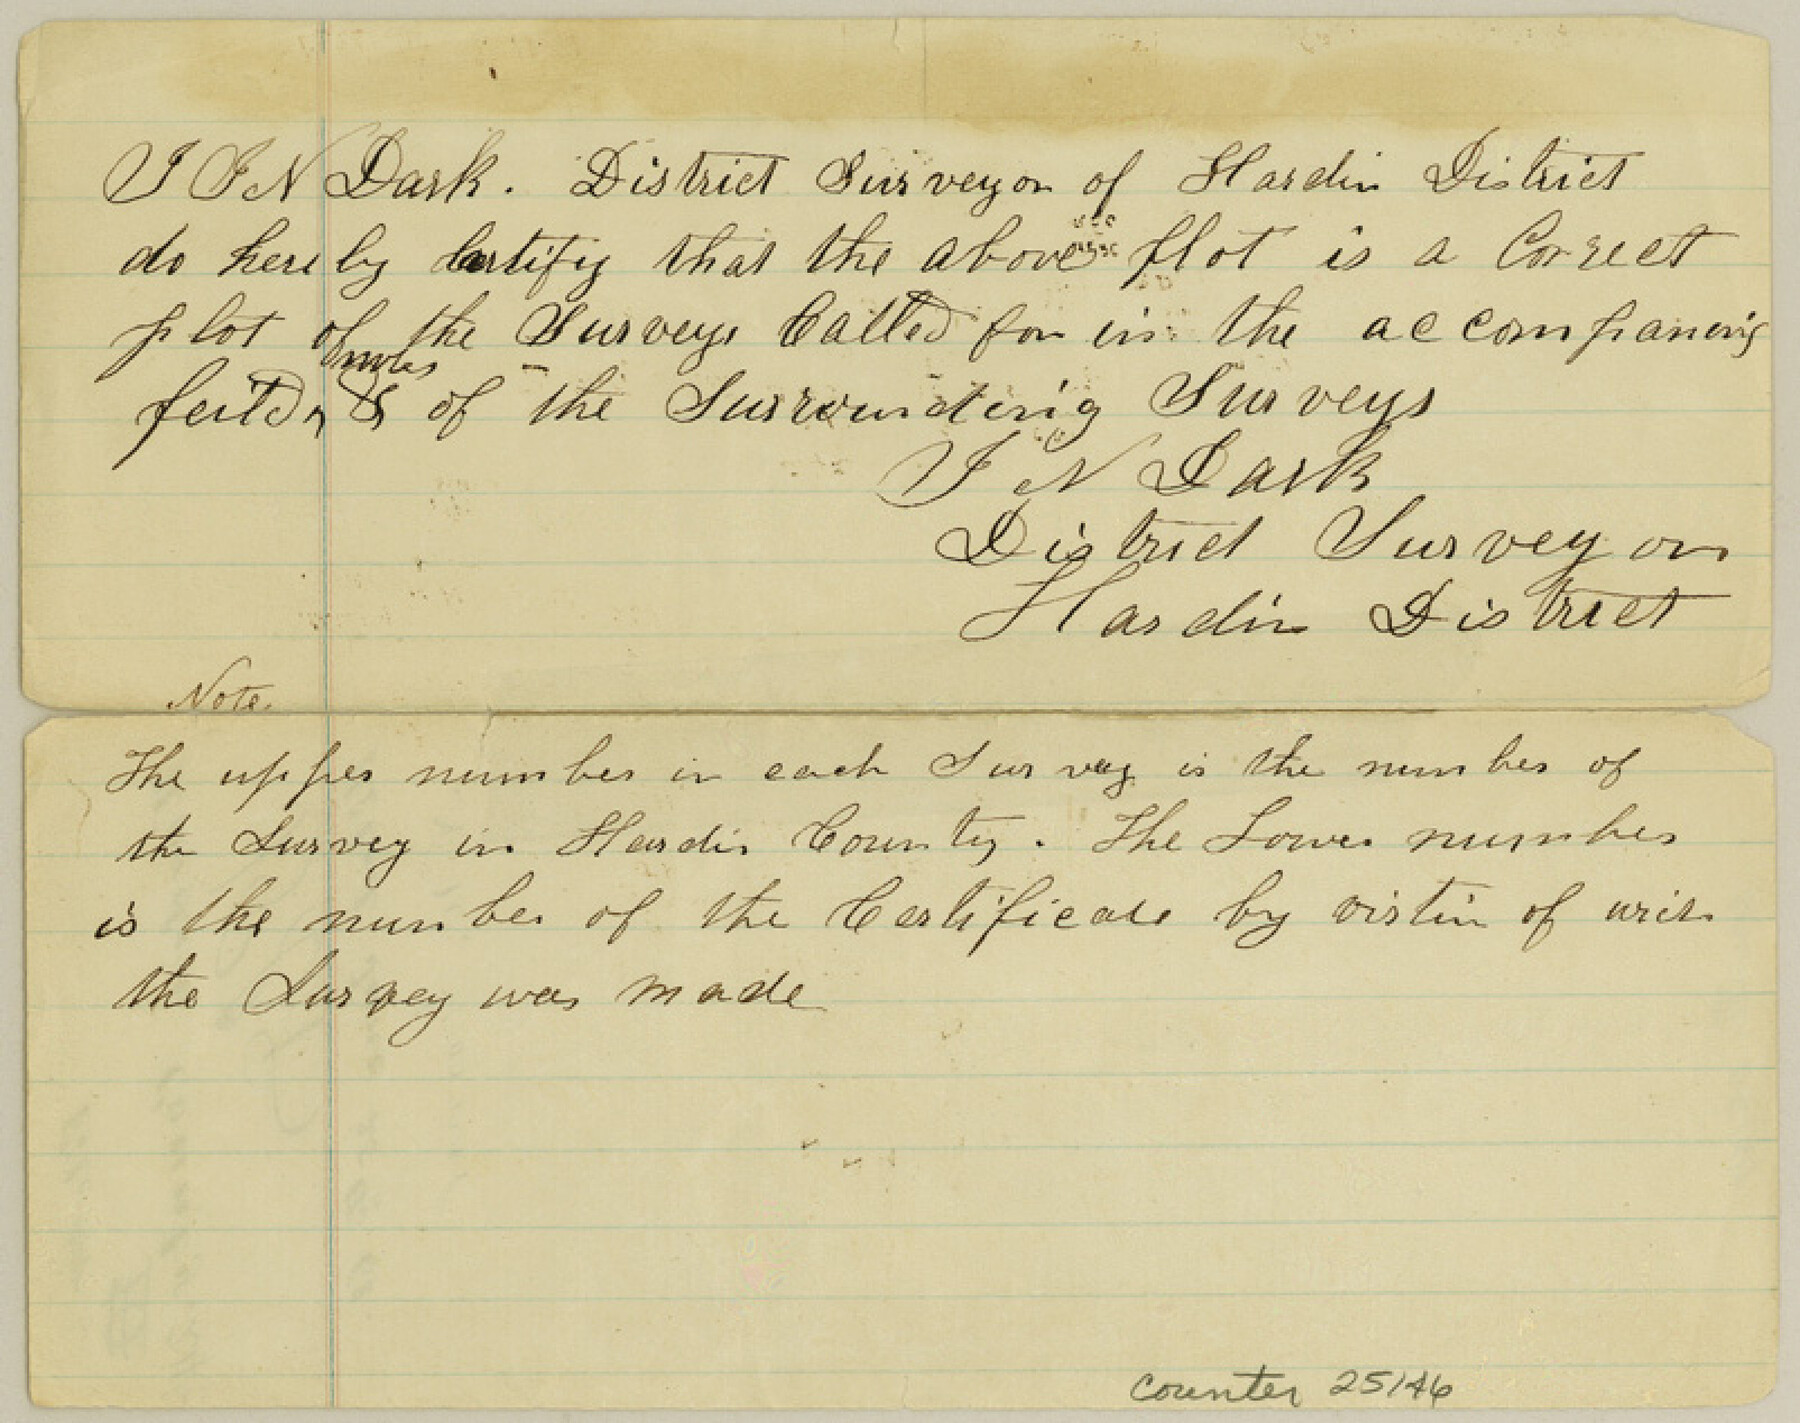 I I N Dark. District Surveyor of Hardin District
do hereby certify that the above plot is a Correct
plot of the Surveys Called for in the accompaning
notes
feild & of the Surrounding Surveys
I N Dark
District Surveyor
Hardin District
Note.
The upper number in each Survey is the number of
the Survey in Hardin County. The Lower number
is the number of the Certificate by virtin of wich
the Survey was made
counter 25146